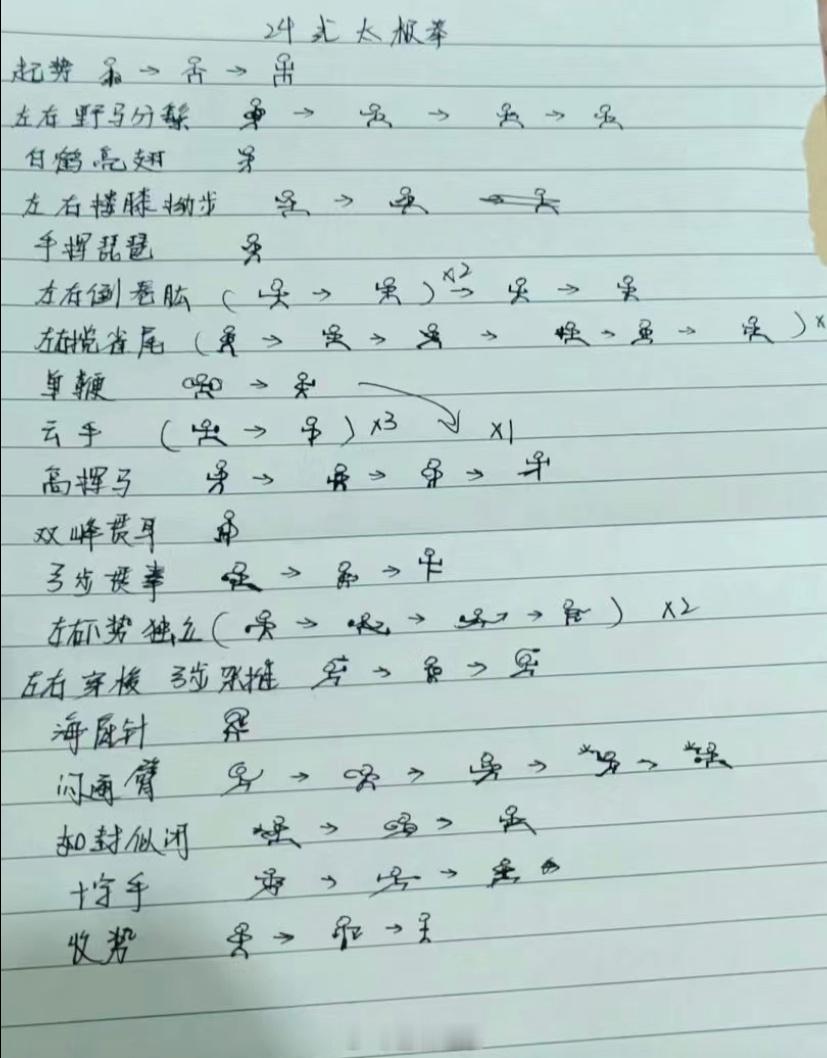 24式太极拳
起势 → →
左右野马分鬃 → → →
白鹤亮翅
左右搂膝拗步 →
手挥琵琶
左右倒卷肱 ( → ) ×2 → →
左右揽雀尾 ( → → → → → ) ×
单鞭 →
云手 ( → ) ×3 ×1
高探马 → → →
双峰贯耳
弓步 → →
左右下势独立 ( → → → ) ×2
左右穿梭 弓步架推 → →
海底针
闪通臂 → → → →
如封似闭 → →
十字手 → →
收势 → →